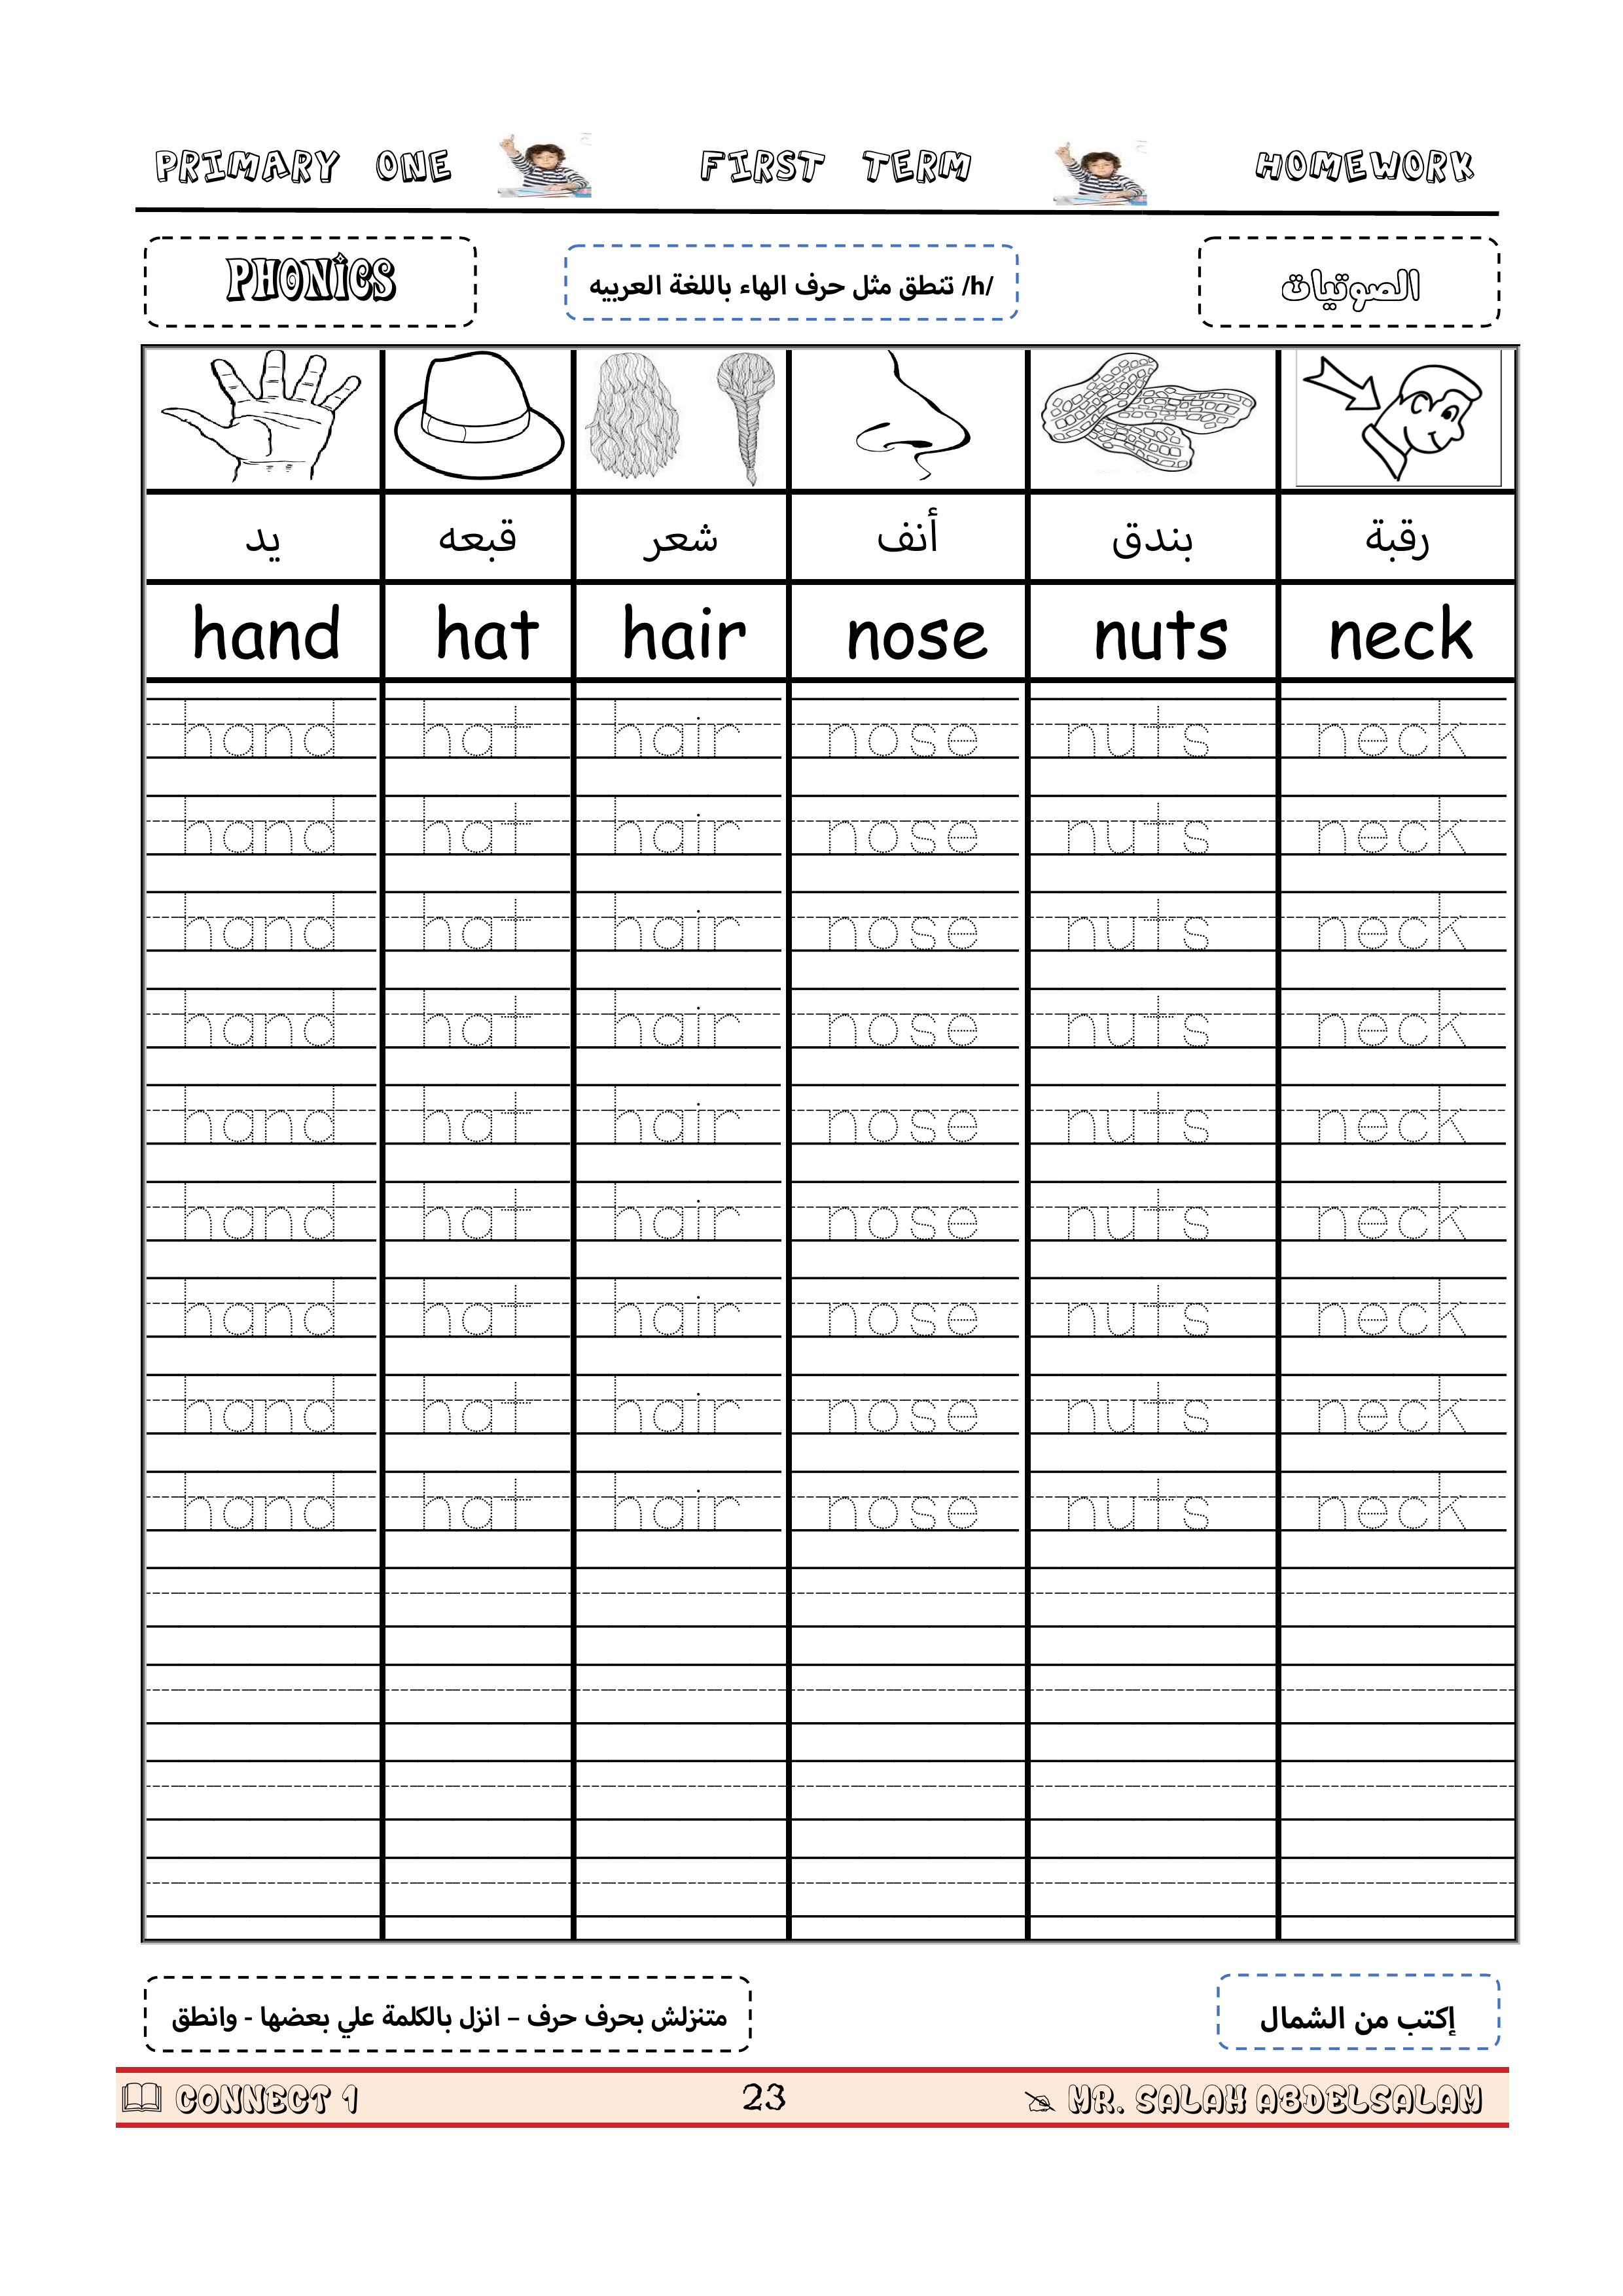 PRIMARY ONE FIRST TERM HOMEWORK
PHONICS /h/ تنطق مثل حرف الهاء باللغة العربيه الصوتيات
يد قبعه شعر أنف بندق رقبة
hand hat hair nose nuts neck
hand hat hair nose nuts neck
hand hat hair nose nuts neck
hand hat hair nose nuts neck
hand hat hair nose nuts neck
hand hat hair nose nuts neck
hand hat hair nose nuts neck
hand hat hair nose nuts neck
hand hat hair nose nuts neck
hand hat hair nose nuts neck
متنزلش بحرف حرف – انزل بالكلمة علي بعضها - وانطق إكتب من الشمال
CONNECT 1 23 MR. SALAH ABDELSALAM